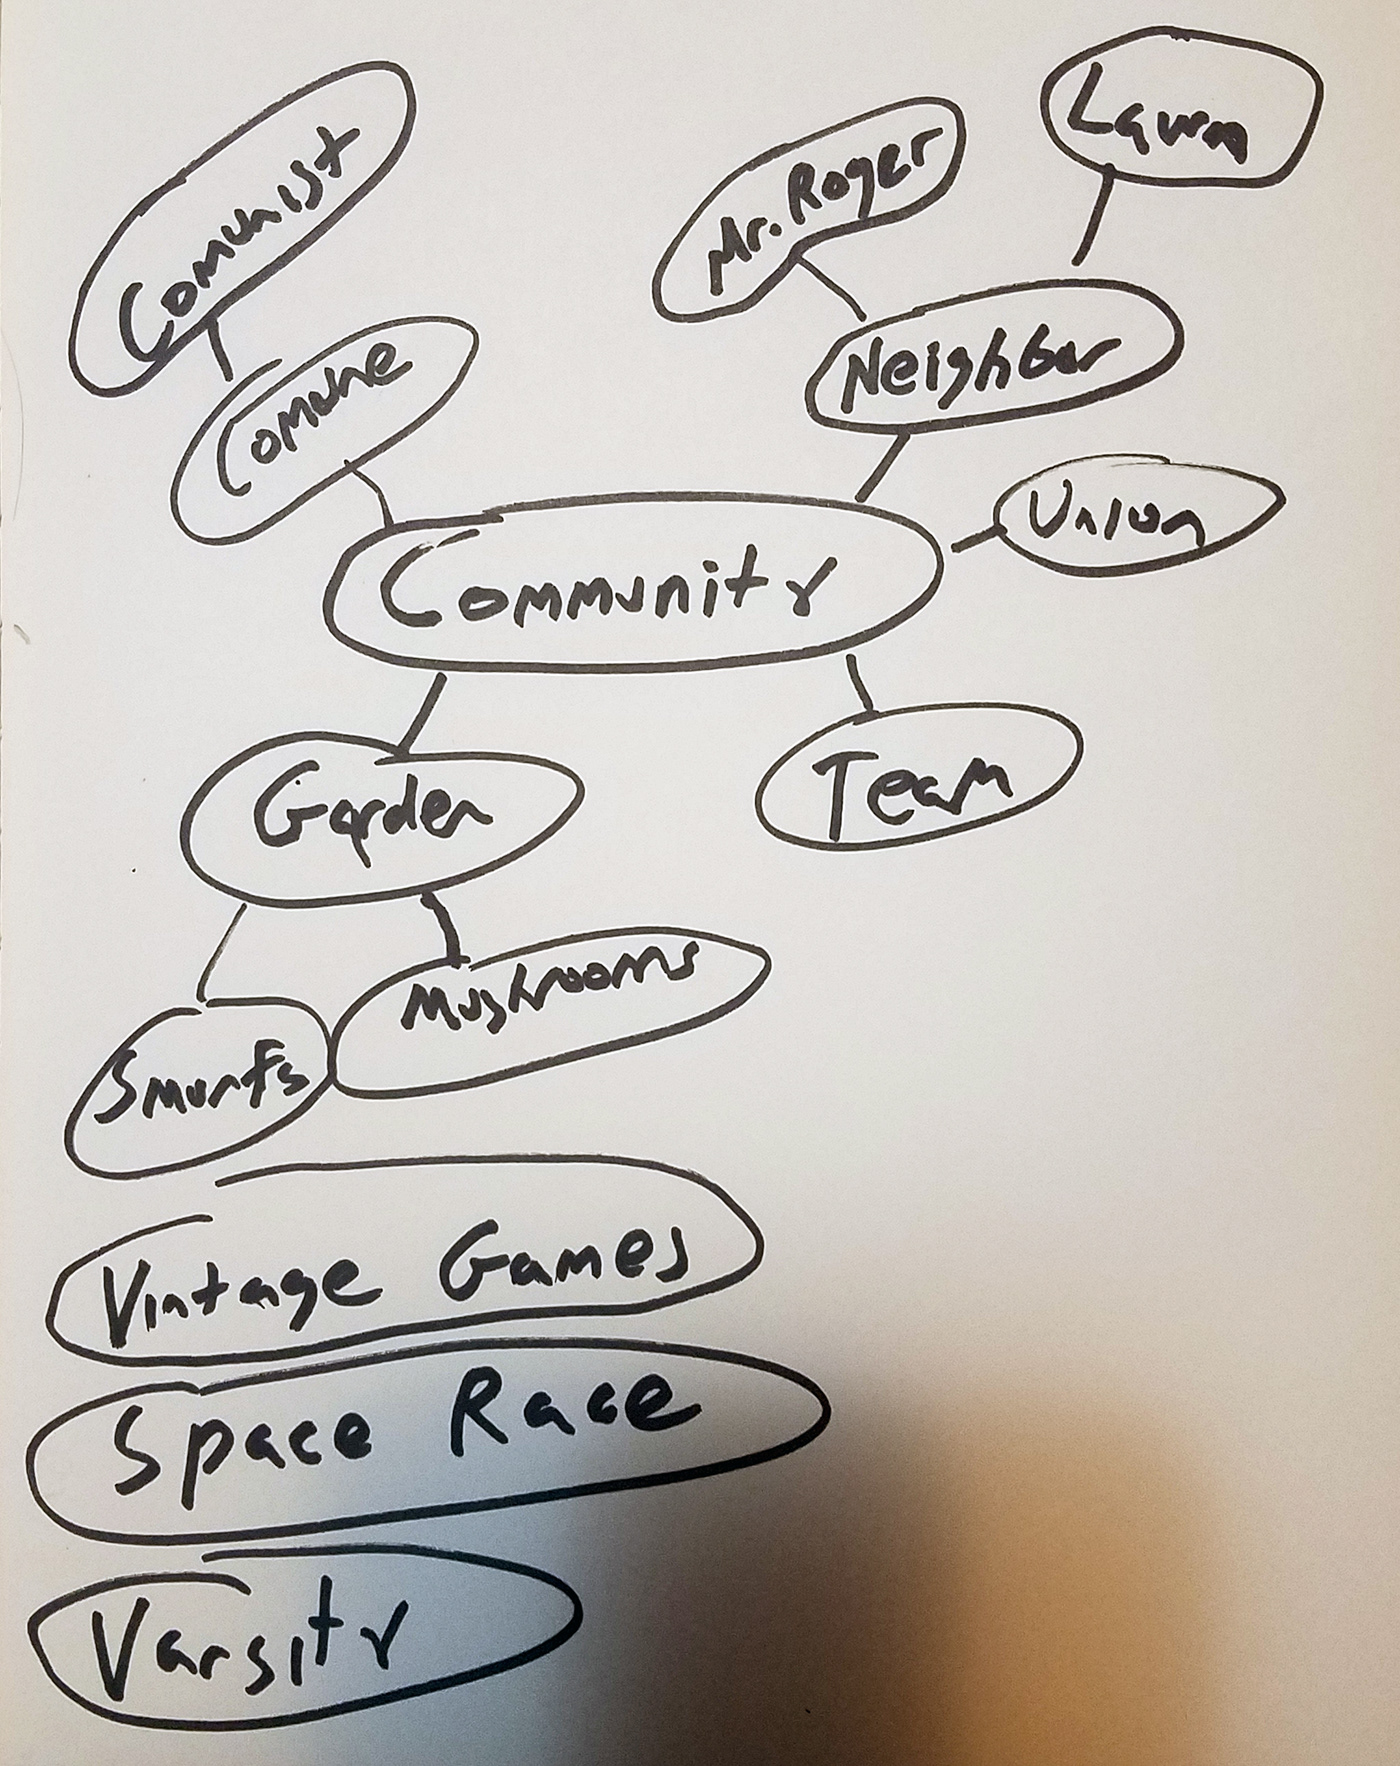 Lawn
Comunist
Mr. Roger
Neighbor
Comune
Union
Community
Team
Garden
Mushrooms
Smurfs
Vintage Games
Space Race
Varsity